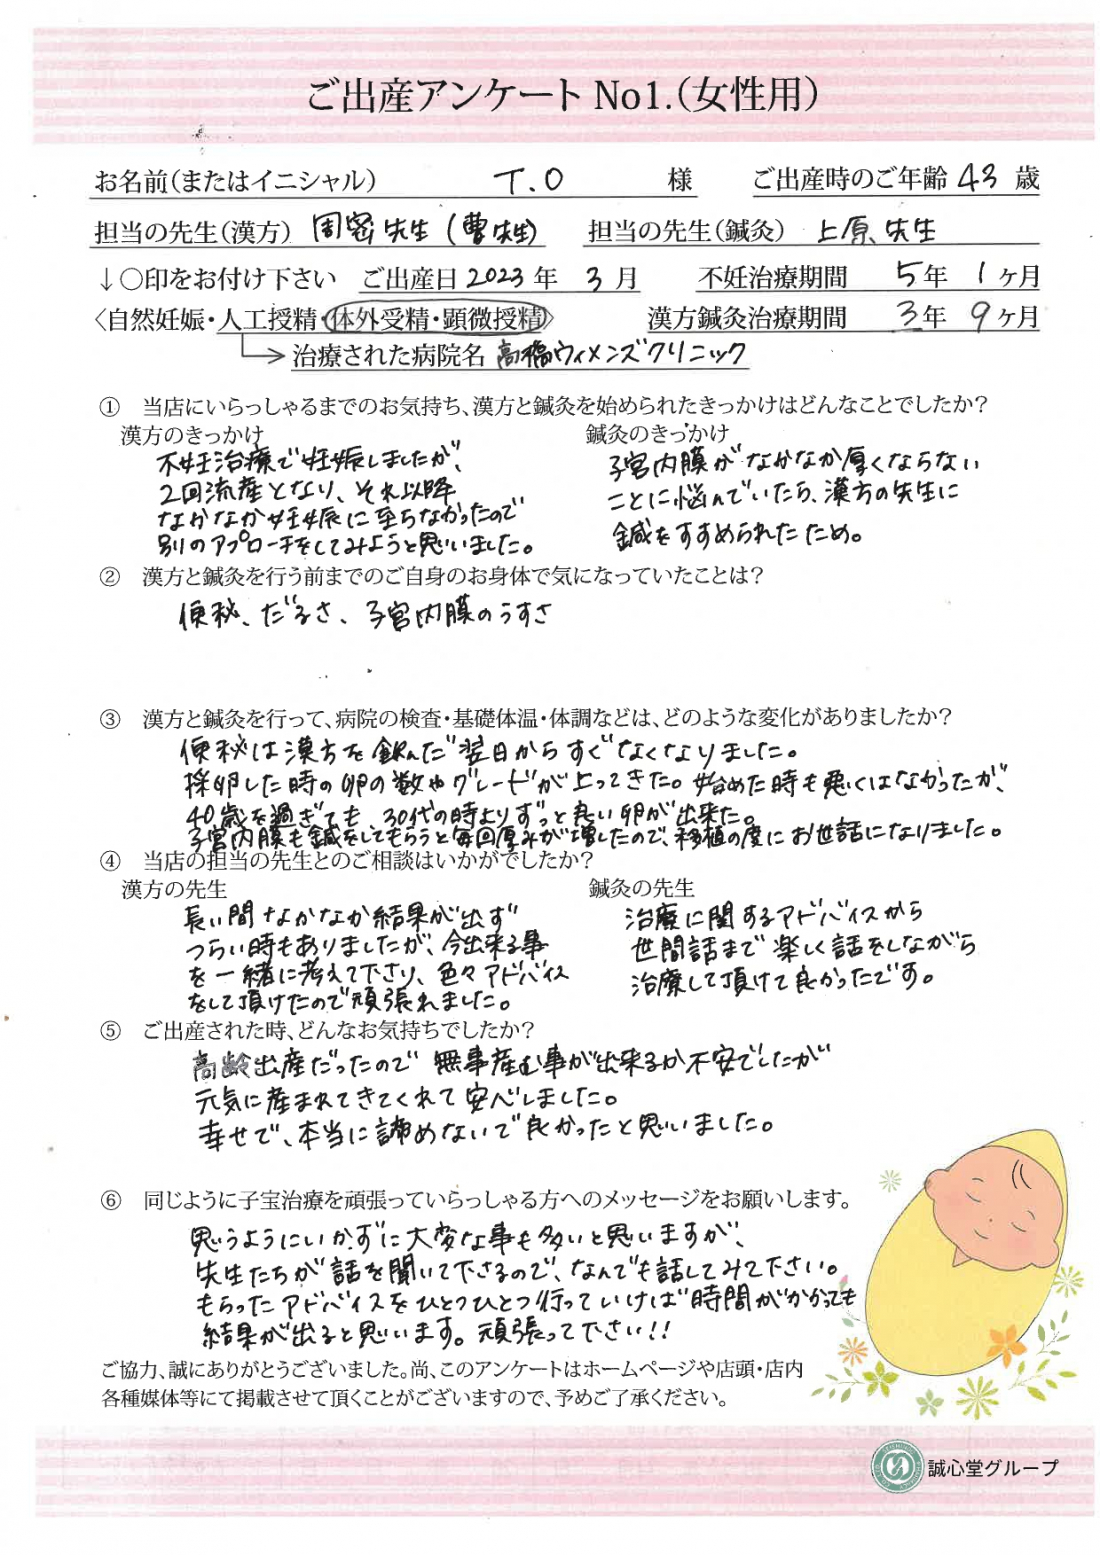 ご出産アンケート No1.(女性用)
お名前(またはイニシャル) T.O 様 ご出産時のご年齢 43 歳
担当の先生(漢方) 周密先生(曹先生) 担当の先生(鍼灸) 上原先生
↓○印をお付け下さい ご出産日 2023年 3月 不妊治療期間 5年 1ヶ月
〈自然妊娠・人工授精・体外受精・顕微授精〉 漢方鍼灸治療期間 3年 9ヶ月
治療された病院名 高橋ウィメンズクリニック
① 当店にいらっしゃるまでのお気持ち、漢方と鍼灸を始められたきっかけはどんなことでしたか?
漢方のきっかけ
不妊治療で妊娠しましたが、
2回流産となり、それ以降
なかなか妊娠に至らなかったので
別のアプローチをしてみようと思いました。
鍼灸のきっかけ
子宮内膜がなかなか厚くならない
ことに悩んでいたら、漢方の先生に
鍼をすすめられたため。
② 漢方と鍼灸を行う前までのご自身のお身体で気になっていたことは?
便秘、だるさ、子宮内膜のうすさ
③ 漢方と鍼灸を行って、病院の検査・基礎体温・体調などは、どのような変化がありましたか?
便秘は漢方を飲んだ翌日からすぐなくなりました。
採卵した時の卵の数やグレードが上ってきた。始めた時も悪くはなかったが、
40歳を過ぎても、30代の時よりずっと良い卵が出来た。
子宮内膜も鍼をしてもらうと毎回厚みが増したので、移植の度にお世話になりました。
④ 当店の担当の先生とのご相談はいかがでしたか?
漢方の先生
長い間なかなか結果が出ず
つらい時もありましたが、今出来る事
を一緒に考えて下さり、色々アドバイス
をして頂けたので頑張れました。
鍼灸の先生
治療に関するアドバイスから
世間話まで楽しく話をしながら
治療して頂けて良かったです。
⑤ ご出産された時、どんなお気持ちでしたか?
高齢出産だったので 無事産む事が出来るか不安でしたが
元気に産まれてきてくれて安心しました。
幸せで、本当に諦めないで良かったと思いました。
⑥ 同じように子宝治療を頑張っていらっしゃる方へのメッセージをお願いします。
思うようにいかずに大変な事も多いと思いますが、
先生たちが話を聞いて下さるので、なんでも話してみて下さい。
もらったアドバイスをひとつひとつ行っていけば時間がかかっても
結果が出ると思います。頑張って下さい!!
ご協力、誠にありがとうございました。尚、このアンケートはホームページや店頭・店内
各種媒体等にて掲載させて頂くことがございますので、予めご了承ください。
誠心堂グループ